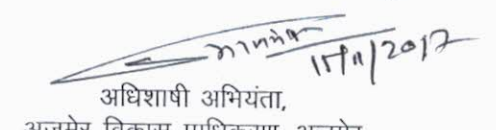 15/11/2017
अधिशाषी अभियंता,
अजमेर विकास प्राधिकरण, अजमेर